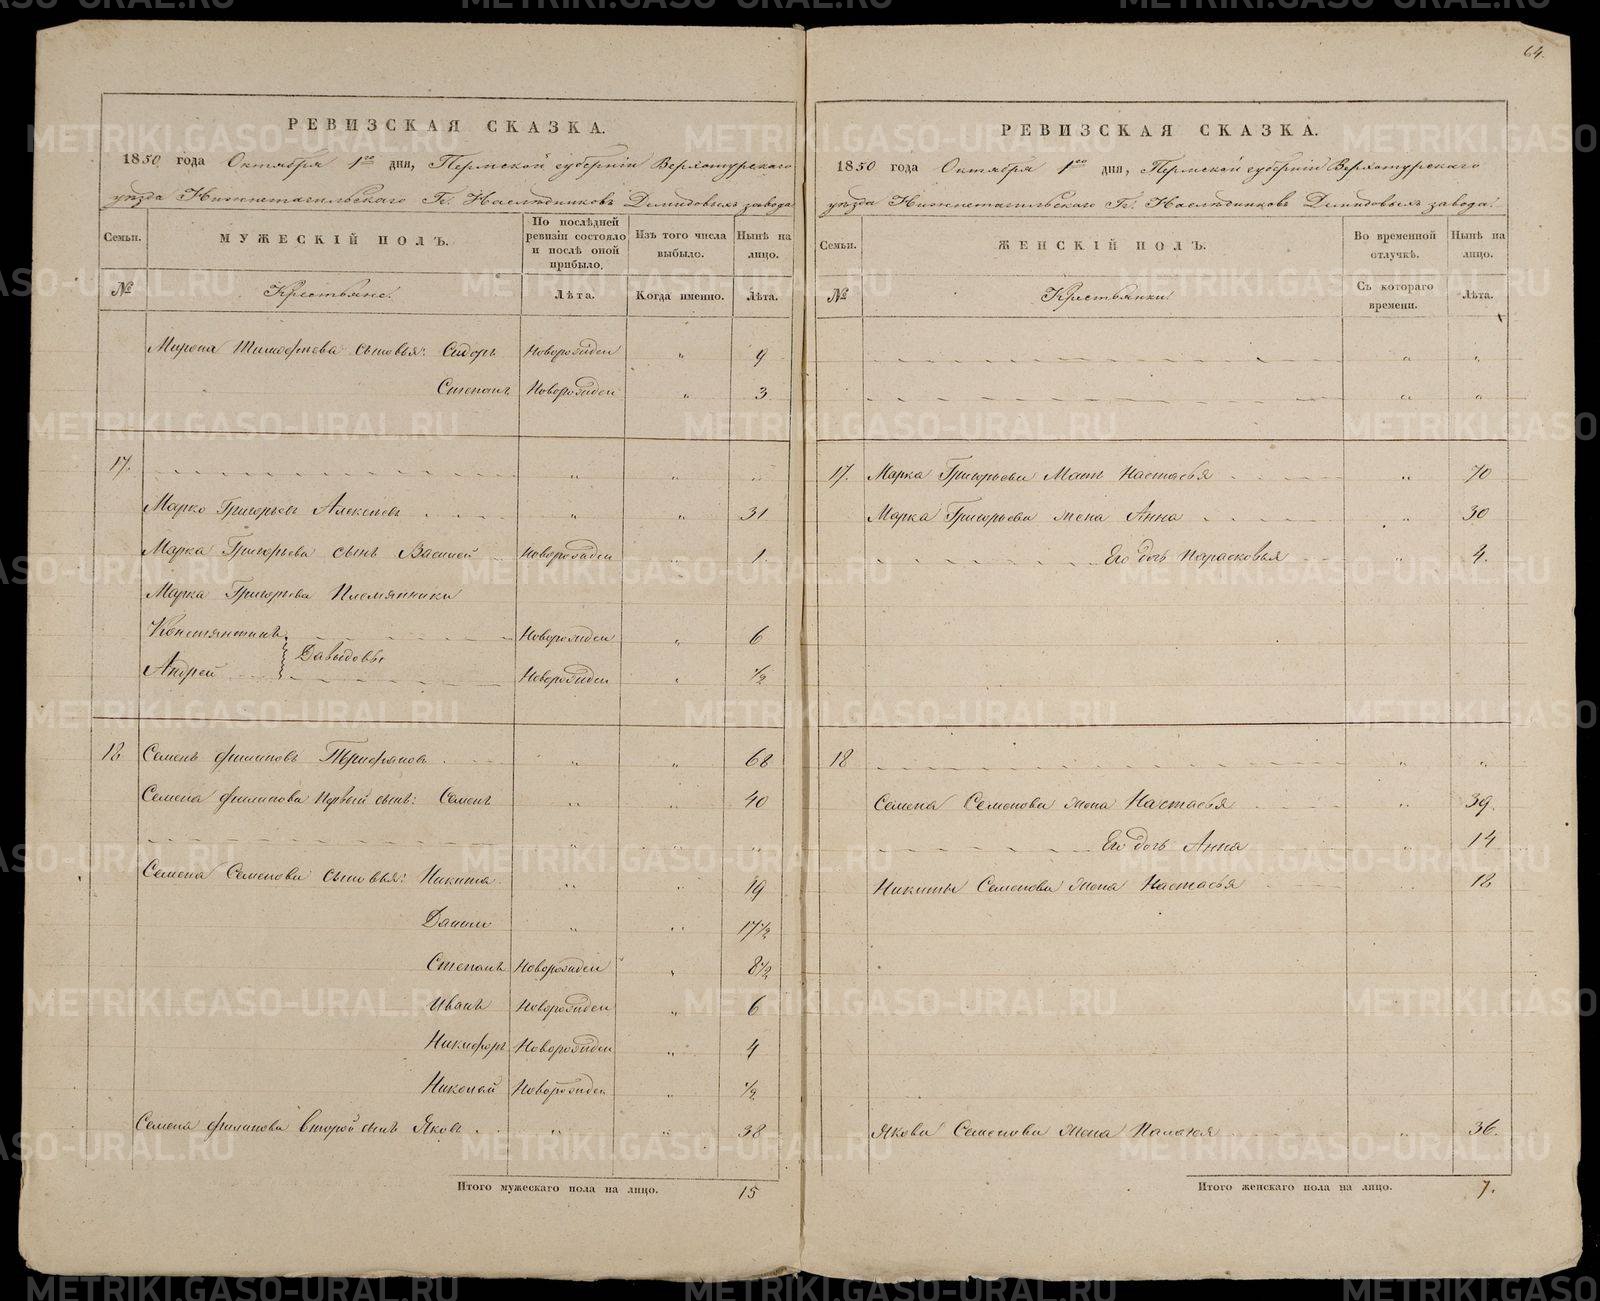 64.
РЕВИЗСКАЯ СКАЗКА.
1850 года Октября 1го дня, Пермской губерніи Верхотурскаго
уѣзда Нижнетагильскаго Гг. Наслѣдниковъ Демидовыхъ завода
Семьи. МУЖЕСКІЙ ПОЛЪ. По послѣдней ревизіи состояло и послѣ оной прибыло. Изъ того числа выбыло. Нынѣ на лицо.
№ Крестьяне. Лѣта. Когда именно. Лѣта.
Мирона Тимофеева сыновья: Сидоръ Новорожден " 9
Степанъ Новорожден " 3
17. " " "
Марко Григорьевъ Алексѣевъ " " 31
Марка Григорьева сынъ Василей Новорожден " 1.
Марка Григорьева Племянники
Констянтинъ Новорожден " 6
Давыдовы
Андрей Новорожден " 1/2
18 Семенъ Филиповъ Трифановъ " " 68
Семена Филипова Первый сынъ: Семенъ " " 40
" " "
Семена Семенова сыновья: Никита " " 19
Данило " " 17 1/2
Степанъ Новорожден " 8 1/2
Иванъ Новорожден " 6
Никифоръ Новорожден " 4
Николай Новорожден " 1/2
Семена Филипова второй сынъ Яковъ " " 38
Итого мужескаго пола на лицо. 15
РЕВИЗСКАЯ СКАЗКА.
1850 года Октября 1го дня, Пермской губерніи Верхотурскаго
уѣзда Нижнетагильскаго Гг. Наслѣдниковъ Демидовыхъ завода.
Семьи. ЖЕНСКІЙ ПОЛЪ. Во временной отлучкѣ. Нынѣ на лицо.
№ Крестьянки. Съ котораго времени. Лѣта.
" "
" "
17. Марка Григорьева Мать Настасья " 70
Марка Григорьева жена Анна " 30
Его дочь Парасковья " 4.
18 " "
Семена Семенова жена Настасья " 39.
Его дочь Анна " 14
Никиты Семенова жена Настасья " 18
Якова Семенова жена Палагея " 36.
Итого женскаго пола на лицо. 7.
METRIKI.GASO-URAL.RU